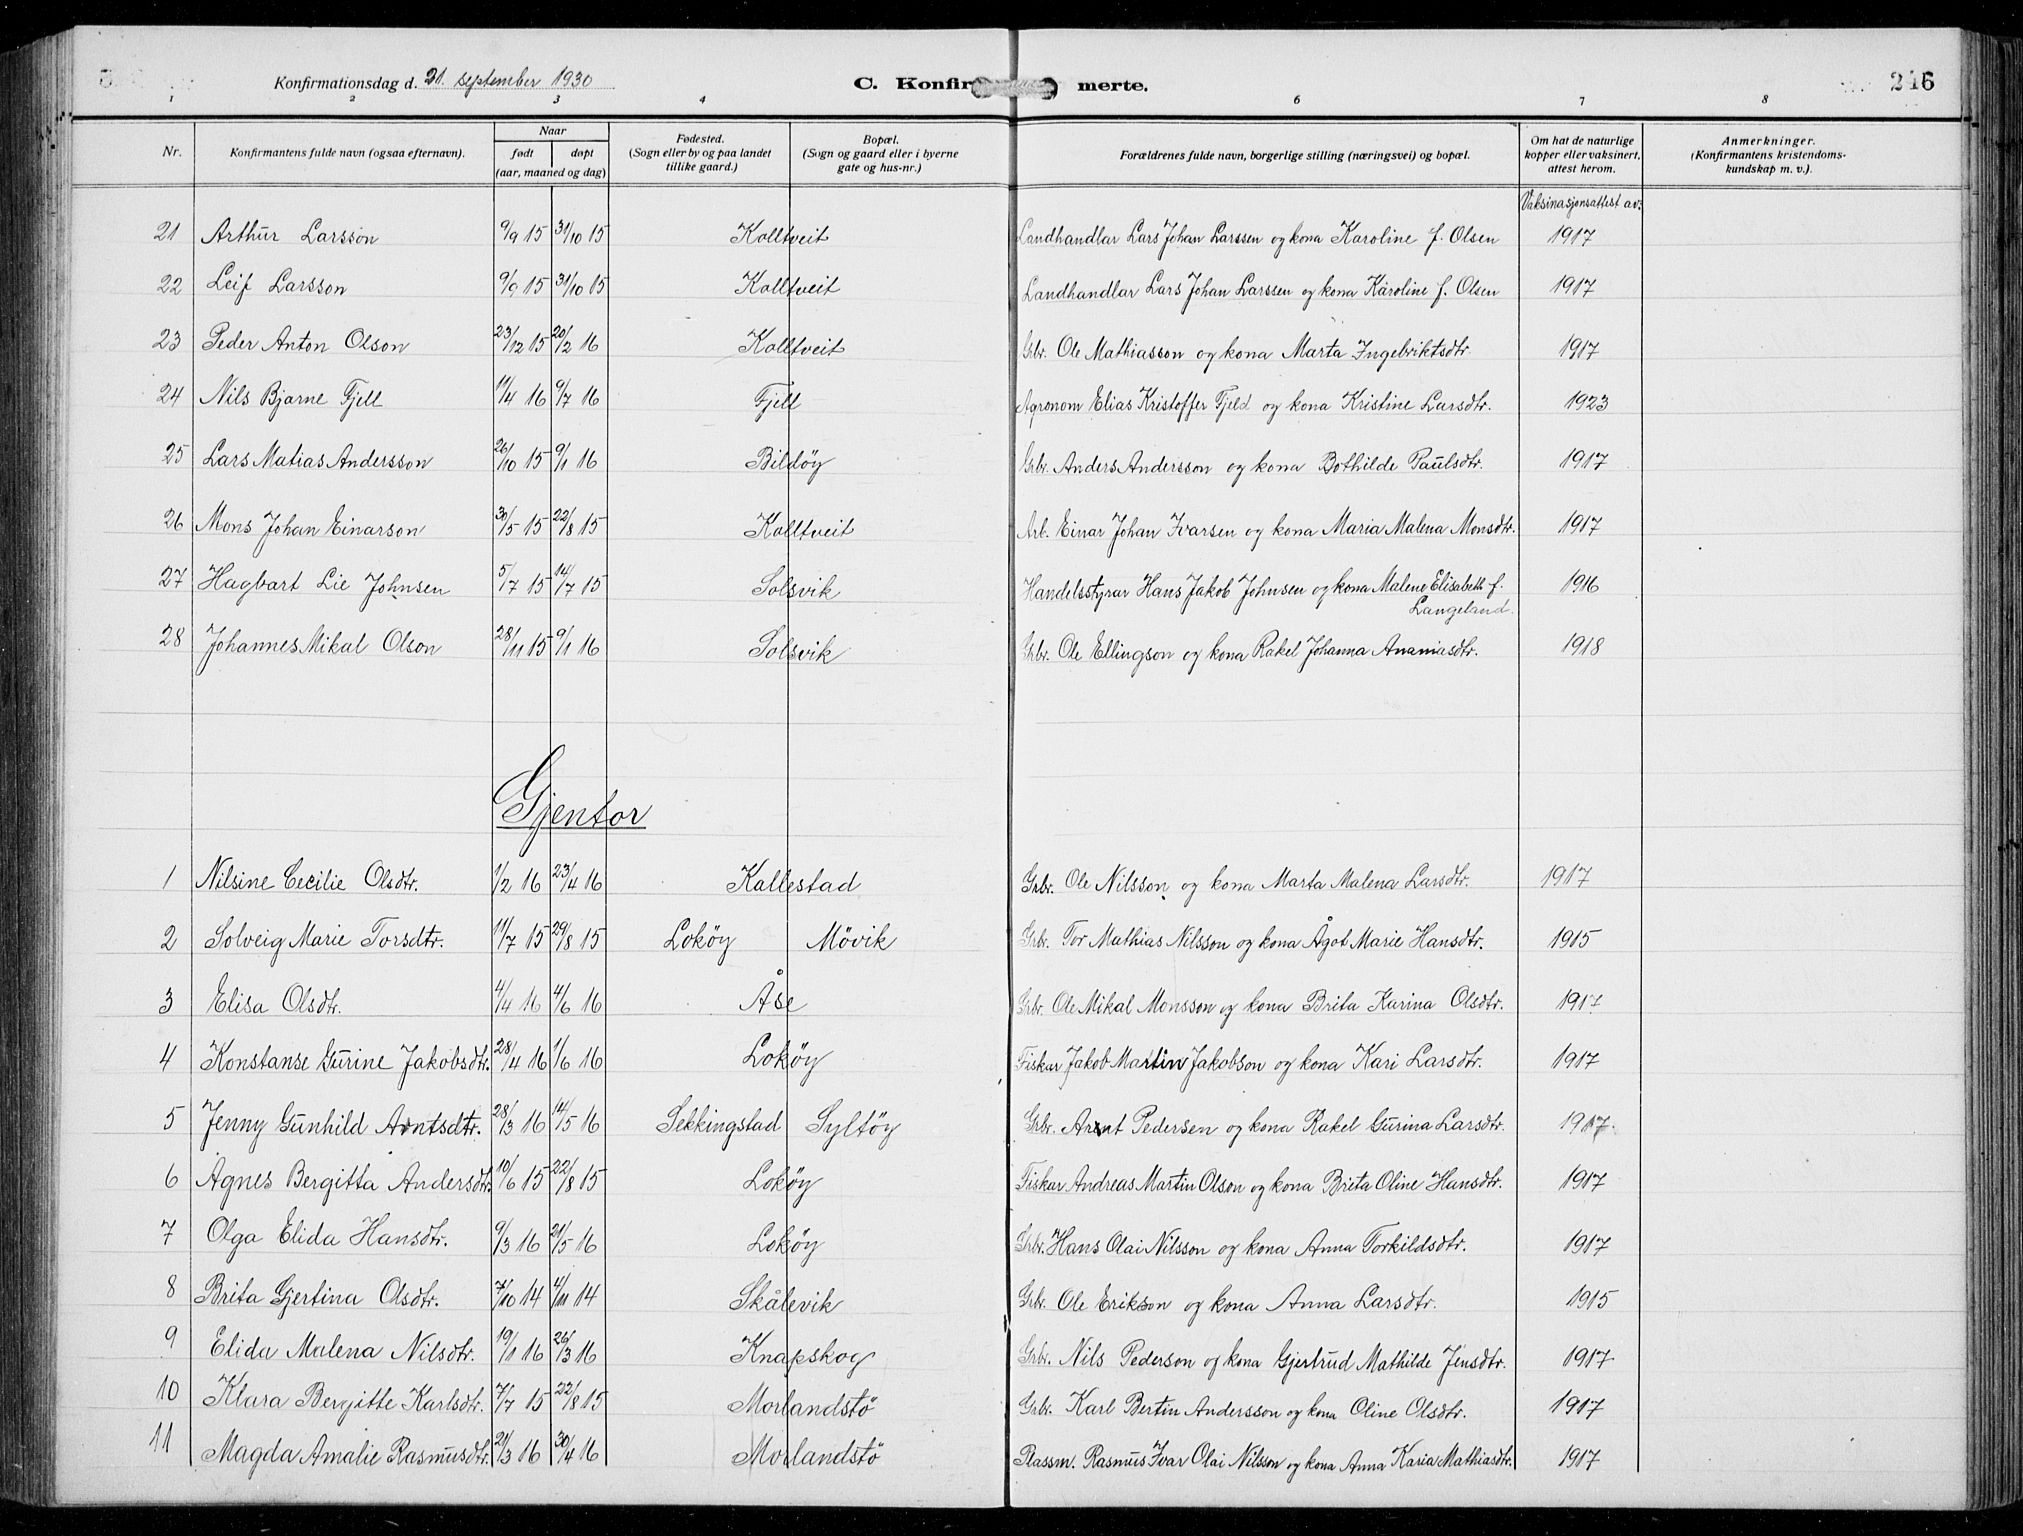 Konfirmationsdag d. 21. september 1930 C. Konfir merte. 246
1 2 3 4 6 7 8
Nr. Konfirmantens fulde navn (ogsaa efternavn). Naar født døpt (aar, maaned og dag) Fødested. (Sogn eller by og paa landet tillike gaard.) Bopæl. (Sogn og gaard eller i byerne gate og hus-nr.) Forældrenes fulde navn, borgerlige stilling (næringsvei) og bopæl. Om hat de naturlige kopper eller vaksinert, attest herom. Anmerkninger. (Konfirmantens kristendoms-kundskap m. v.).
Vaksinasjonsattest av:
21 Arthur Larsson 9/9 15 31/10 15 Kolltveit Landhandlar Lars Johan Larssen og kona Karoline f. Olsen 1917
22 Leif Larsson 9/9 15 31/10 15 Kolltveit Landhandlar Lars Johan Larssen og kona Karoline f. Olsen 1917
23 Peder Anton Olson 23/12 15 20/2 16 Kolltveit Grbr. Ole Mathiasson og kona Marta Ingebriktsdtr. 1917
24 Nils Bjarne Fjell 11/4 16 9/7 16 Fjell Agronom Elias Kristoffer Fjeld og kona Kristine Larsdtr. 1923
25 Lars Matias Andersson 26/10 15 9/1 16 Bildøy Grbr. Anders Andersson og kona Bothilde Paulsdtr. 1917
26 Mons Johan Einarson 30/5 15 22/8 15 Kolltveit Arb. Einar Johan Ivarsen og kona Maria Malena Monsdtr. 1917
27 Hagbart Lie Johnsen 5/7 15 14/7 15 Solsvik Handelsstyrar Hans Jakob Johnsen og kona Malene Elisabeth f. Langeland. 1916
28 Johannes Mikal Olson 28/11 15 9/1 16 Solsvik Grbr. Ole Ellingson og kona Rakel Johanna Ananiasdtr. 1918
Gjentor
1 Nilsine Cecilie Olsdtr. 1/2 16 23/4 16 Kallestad Grbr. Ole Nilsson og kona Marta Malena Larsdtr. 1917
2 Solveig Marie Torsdtr. 11/7 15 29/8 15 Lokøy Møvik Grbr. Tor Mathias Nilsson og kona Ågot Marie Hansdtr. 1915
3 Elisa Olsdtr. 4/4 16 4/6 16 Åse Grbr. Ole Mikal Monsson og kona Brita Karina Olsdtr. 1917
4 Konstanse Gurine Jakobsdtr. 28/4 16 1/6 16 Lokøy Fiskar Jakob Martin Jakobson og kona Kari Larsdtr. 1917
5 Jenny Gunhild Arntsdtr. 28/3 16 14/5 16 Sekkingstad Syltøy Grbr. Arnt Pedersen og kona Rakel Gurina Larsdtr. 1917.
6 Agnes Bergitta Andersdtr. 10/6 15 22/8 15 Lokøy Fiskar Andreas Martin Olson og kona Brita Oline Hansdtr. 1917
7 Olga Elida Hansdtr. 9/3 16 21/5 16 Lokøy Grbr. Hans Olai Nilsson og kona Anna Torkildsdtr. 1917
8 Brita Gjertina Olsdtr. 7/10 14 4/11 14 Skålevik Grbr. Ole Erikson og kona Anna Larsdtr. 1915
9 Elida Malena Nilsdtr. 19/1 16 26/3 16 Knapskog Grbr. Nils Pederson og kona Gjertrud Mathilde Jensdtr. 1917
10 Klara Bergitte Karlsdtr. 7/7 15 22/8 15 Morlandstø Grbr. Karl Bertin Andersson og kona Oline Olsdtr. 1917
11 Magda Amalie Rasmusdtr. 21/3 16 30/4 16 Morlandstø Plassm. Rasmus Ivar Olai Nilsson og kona Anna Karia Mathiasdtr. 1917